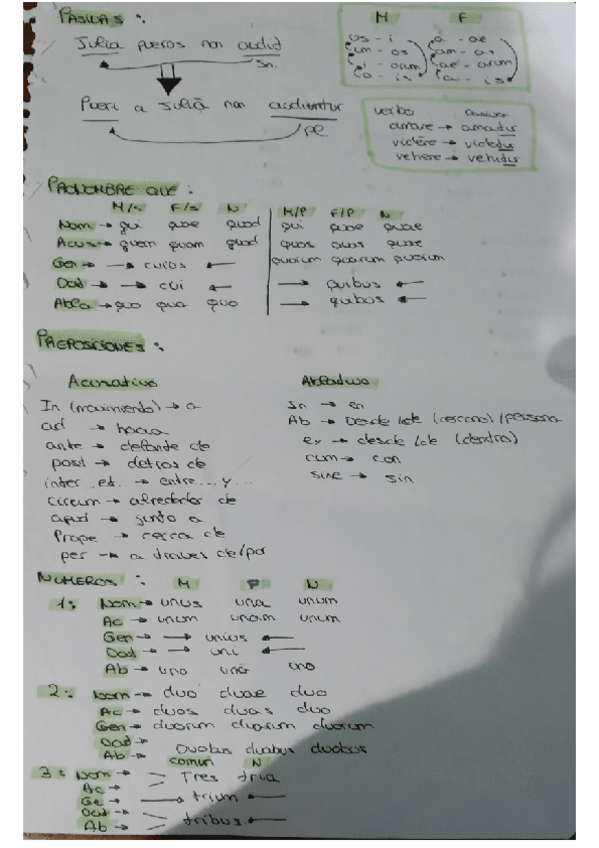 PASIVAS :
Julia pueros non audid
Sn.
Pueri a Juliā non audiuntur
pl
M F
os - i a - ae
um - os am - as
i - orum ae - arum
o - is a - is
verbo pasivo
amare → amadis
vidēre → videdis
vehere → vehidis
PRONOMBRE QUE :
M/s F/s N M/P F/P N
Nom → qui quae quod qui quae quae
Acus → quem quam quod quos quas quae
Gen → → cuius ← quorum quarum quorum
Dad → → cui ← → quibus ←
Abla → quo qua quo → quibus ←
PREPOSICIONES :
Acusativo
In (movimiento) → a
ad → hacia
ante → delante de
post → detras de
inter ..et.. → entre ... y ...
circum → alrededor de
apud → junto a
Prope → cerca de
per → a traves de/por
Ablativo
In → en
Ab → Desde/de (cercano)/persona
ex → desde/de (dentro)
cum → con
sine → sin
NUMEROS : M F N
1: Nom → unus una unum
Ac → unum unam unum
Gen → → unius ←
Dad → → uni ←
Ab → uno unā uno
2: Nom → duo duae duo
Ac → duos duas duo
Gen → duorum duarum duorum
Dad →
Ab → Duobus duabus duobus
comun N
3: Nom → Tres tria
Ac →
Ge → trium ←
Dad →
Ab → tribus ←